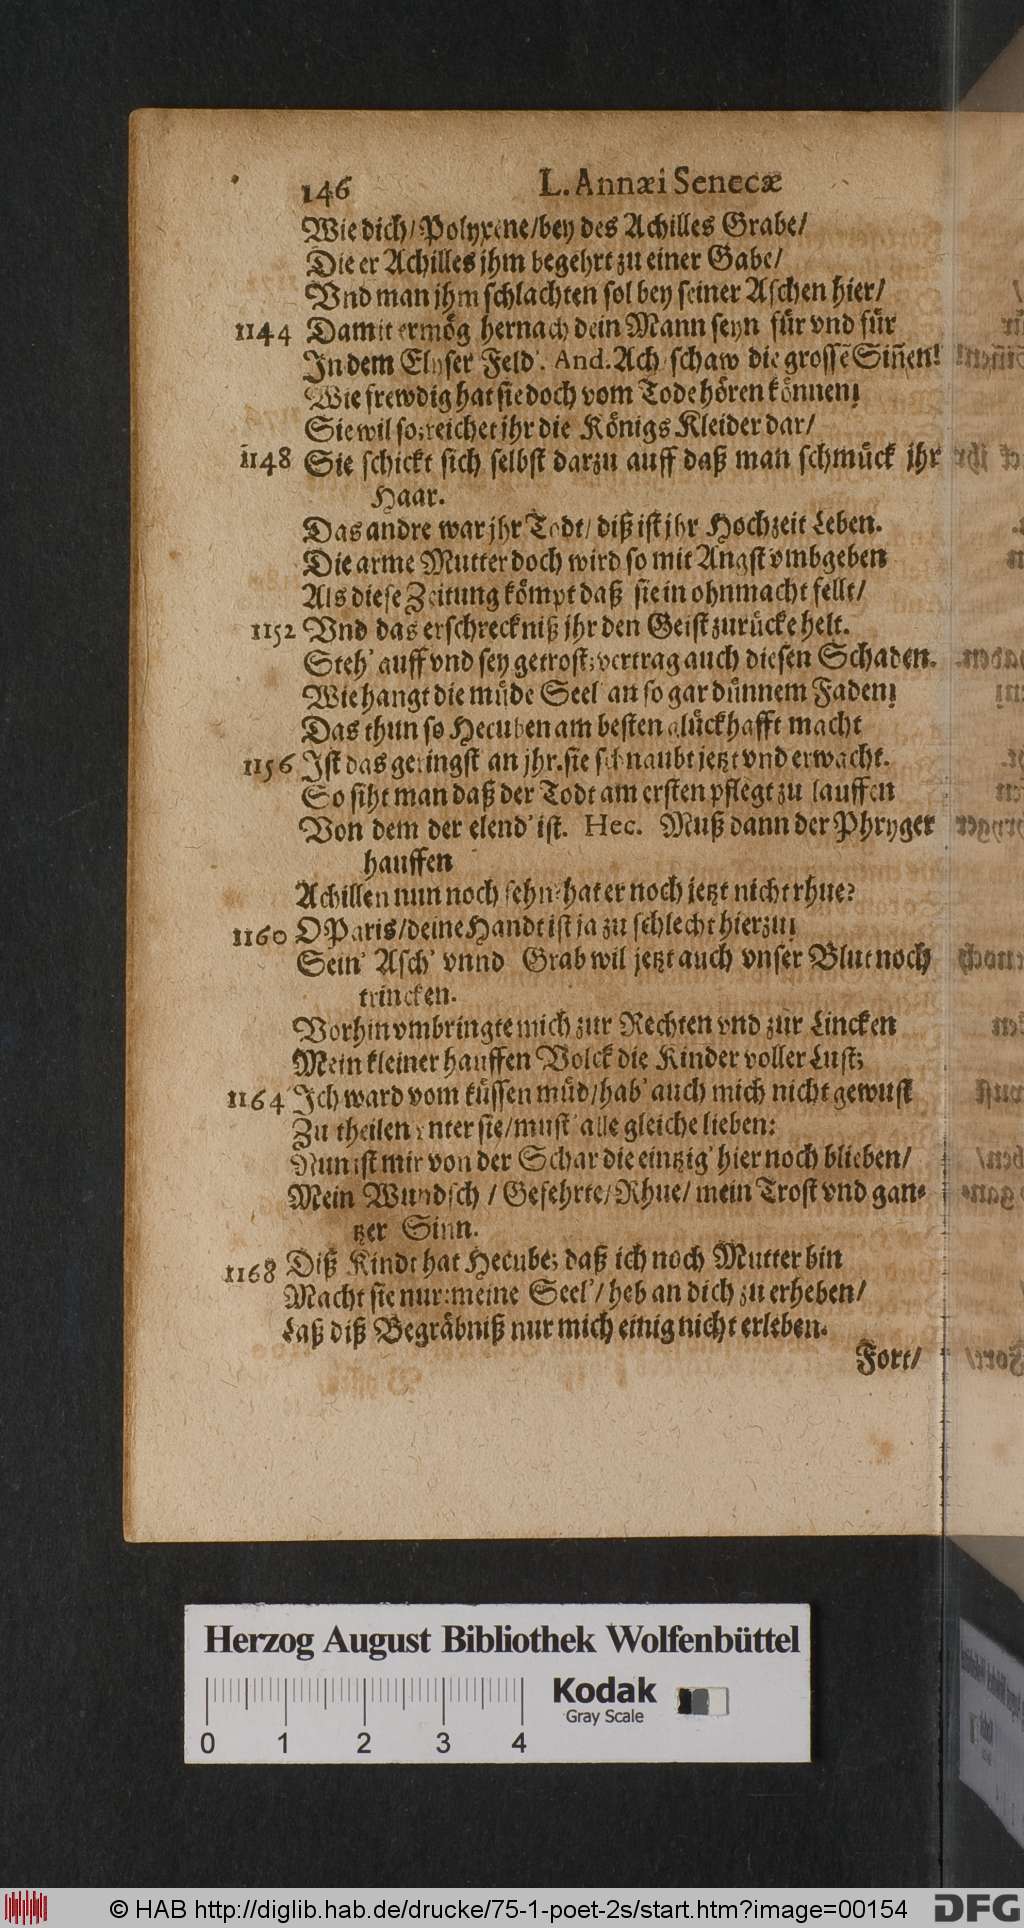 146 L. Annæi Senecæ
Wie dich/ Polyxene/ bey des Achilles Grabe/
Die er Achilles jhm begehrt zu einer Gabe/
Vnd man jhm schlachten sol bey seiner Aschen hier/
1144 Damit er mög hernach dein Mann seyn für vnd für
In dem Elyser Feld'. And. Ach schaw die grossē Siñen!
Wie frewdig hat sie doch vom Tode hören können;
Sie wil so; reichet jhr die Königs Kleider dar/
1148 Sie schickt sich selbst darzu auff daß man schmück jhr
Haar.
Das andre war jhr Todt/ diß ist jhr Hochzeit Leben.
Die arme Mutter doch wird so mit Angst vmbgeben
Als diese Zeitung kömpt daß sie in ohnmacht fellt/
1152 Vnd das erschreckniß jhr den Geist zurücke helt.
Steh' auff vnd sey getrost; vertrag auch diesen Schaden.
Wie hangt die müde Seel' an so gar dünnem Faden;
Das thun so Hecuben am besten glückhafft macht
1156 Ist das geringst an jhr. sie schnaubt jetzt vnd erwacht.
So siht man daß der Todt am ersten pflegt zu lauffen
Von dem der elend' ist. Hec. Muß dann der Phryger
hauffen
Achillen nun noch sehn? hat er noch jetzt nicht rhue?
1160 O Paris/ deine Handt ist ja zu schlecht hierzu;
Sein' Asch' vnnd Grab wil jetzt auch vnser Blut noch
trincken.
Vorhin vmbringte mich zur Rechten vnd zur Lincken
Mein kleiner hauffen Volck die Kinder voller Lust;
1164 Ich ward vom küssen müd/ hab' auch mich nicht gewust
Zu theilen vnter sie/ must' alle gleiche lieben:
Nun ist mir von der Schar die eintzig' hier noch blieben/
Mein Wundsch / Gefehrte/ Rhue/ mein Trost vnd gan-
tzer Sinn.
1168 Diß Kindt hat Hecube; daß ich noch Mutter bin
Macht sie nur: meine Seel'/ heb an dich zu erheben/
Laß diß Begräbniß nur mich einig nicht erleben.
Fort/
Herzog August Bibliothek Wolfenbüttel
0 1 2 3 4
Kodak
Gray Scale
© HAB http://diglib.hab.de/drucke/75-1-poet-2s/start.htm?image=00154
DFG